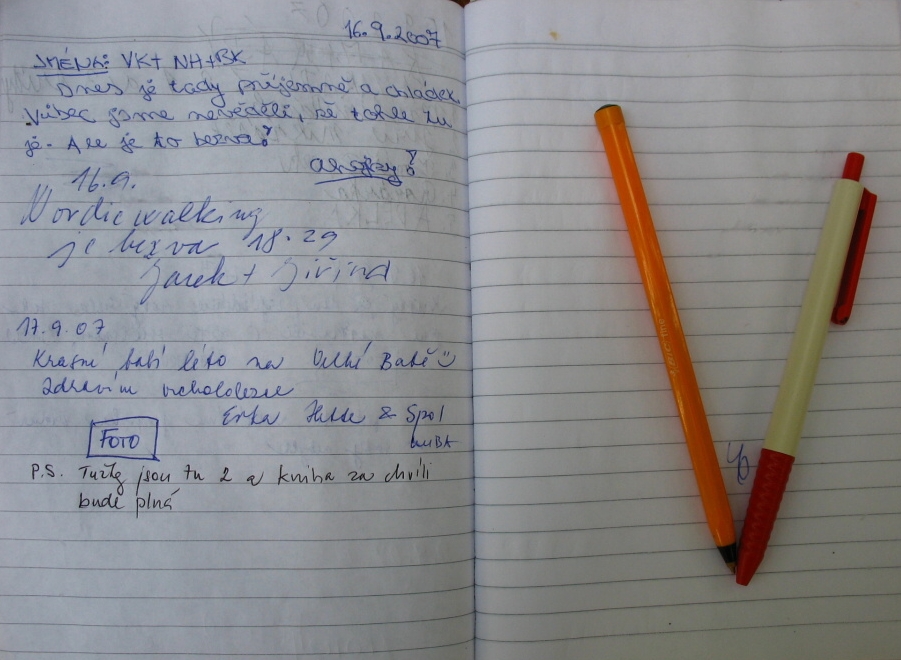 16.9.2007
JMÉNA: VK+ NH+BK
Dnes je tady příjemně a chládek
Vůbec jsme nevěděli, že tohle tu
je. Ale je to bezva!
16.9.
Nordic walking
je bezva 18.29
Jarek + Jiřina
17.9.07
Krásné babí léto na Velké Babě
Zdravím vrcholole
& Spol
FOTO
P.S. Tužky jsou tu 2 a kniha za chvíli
bude plná